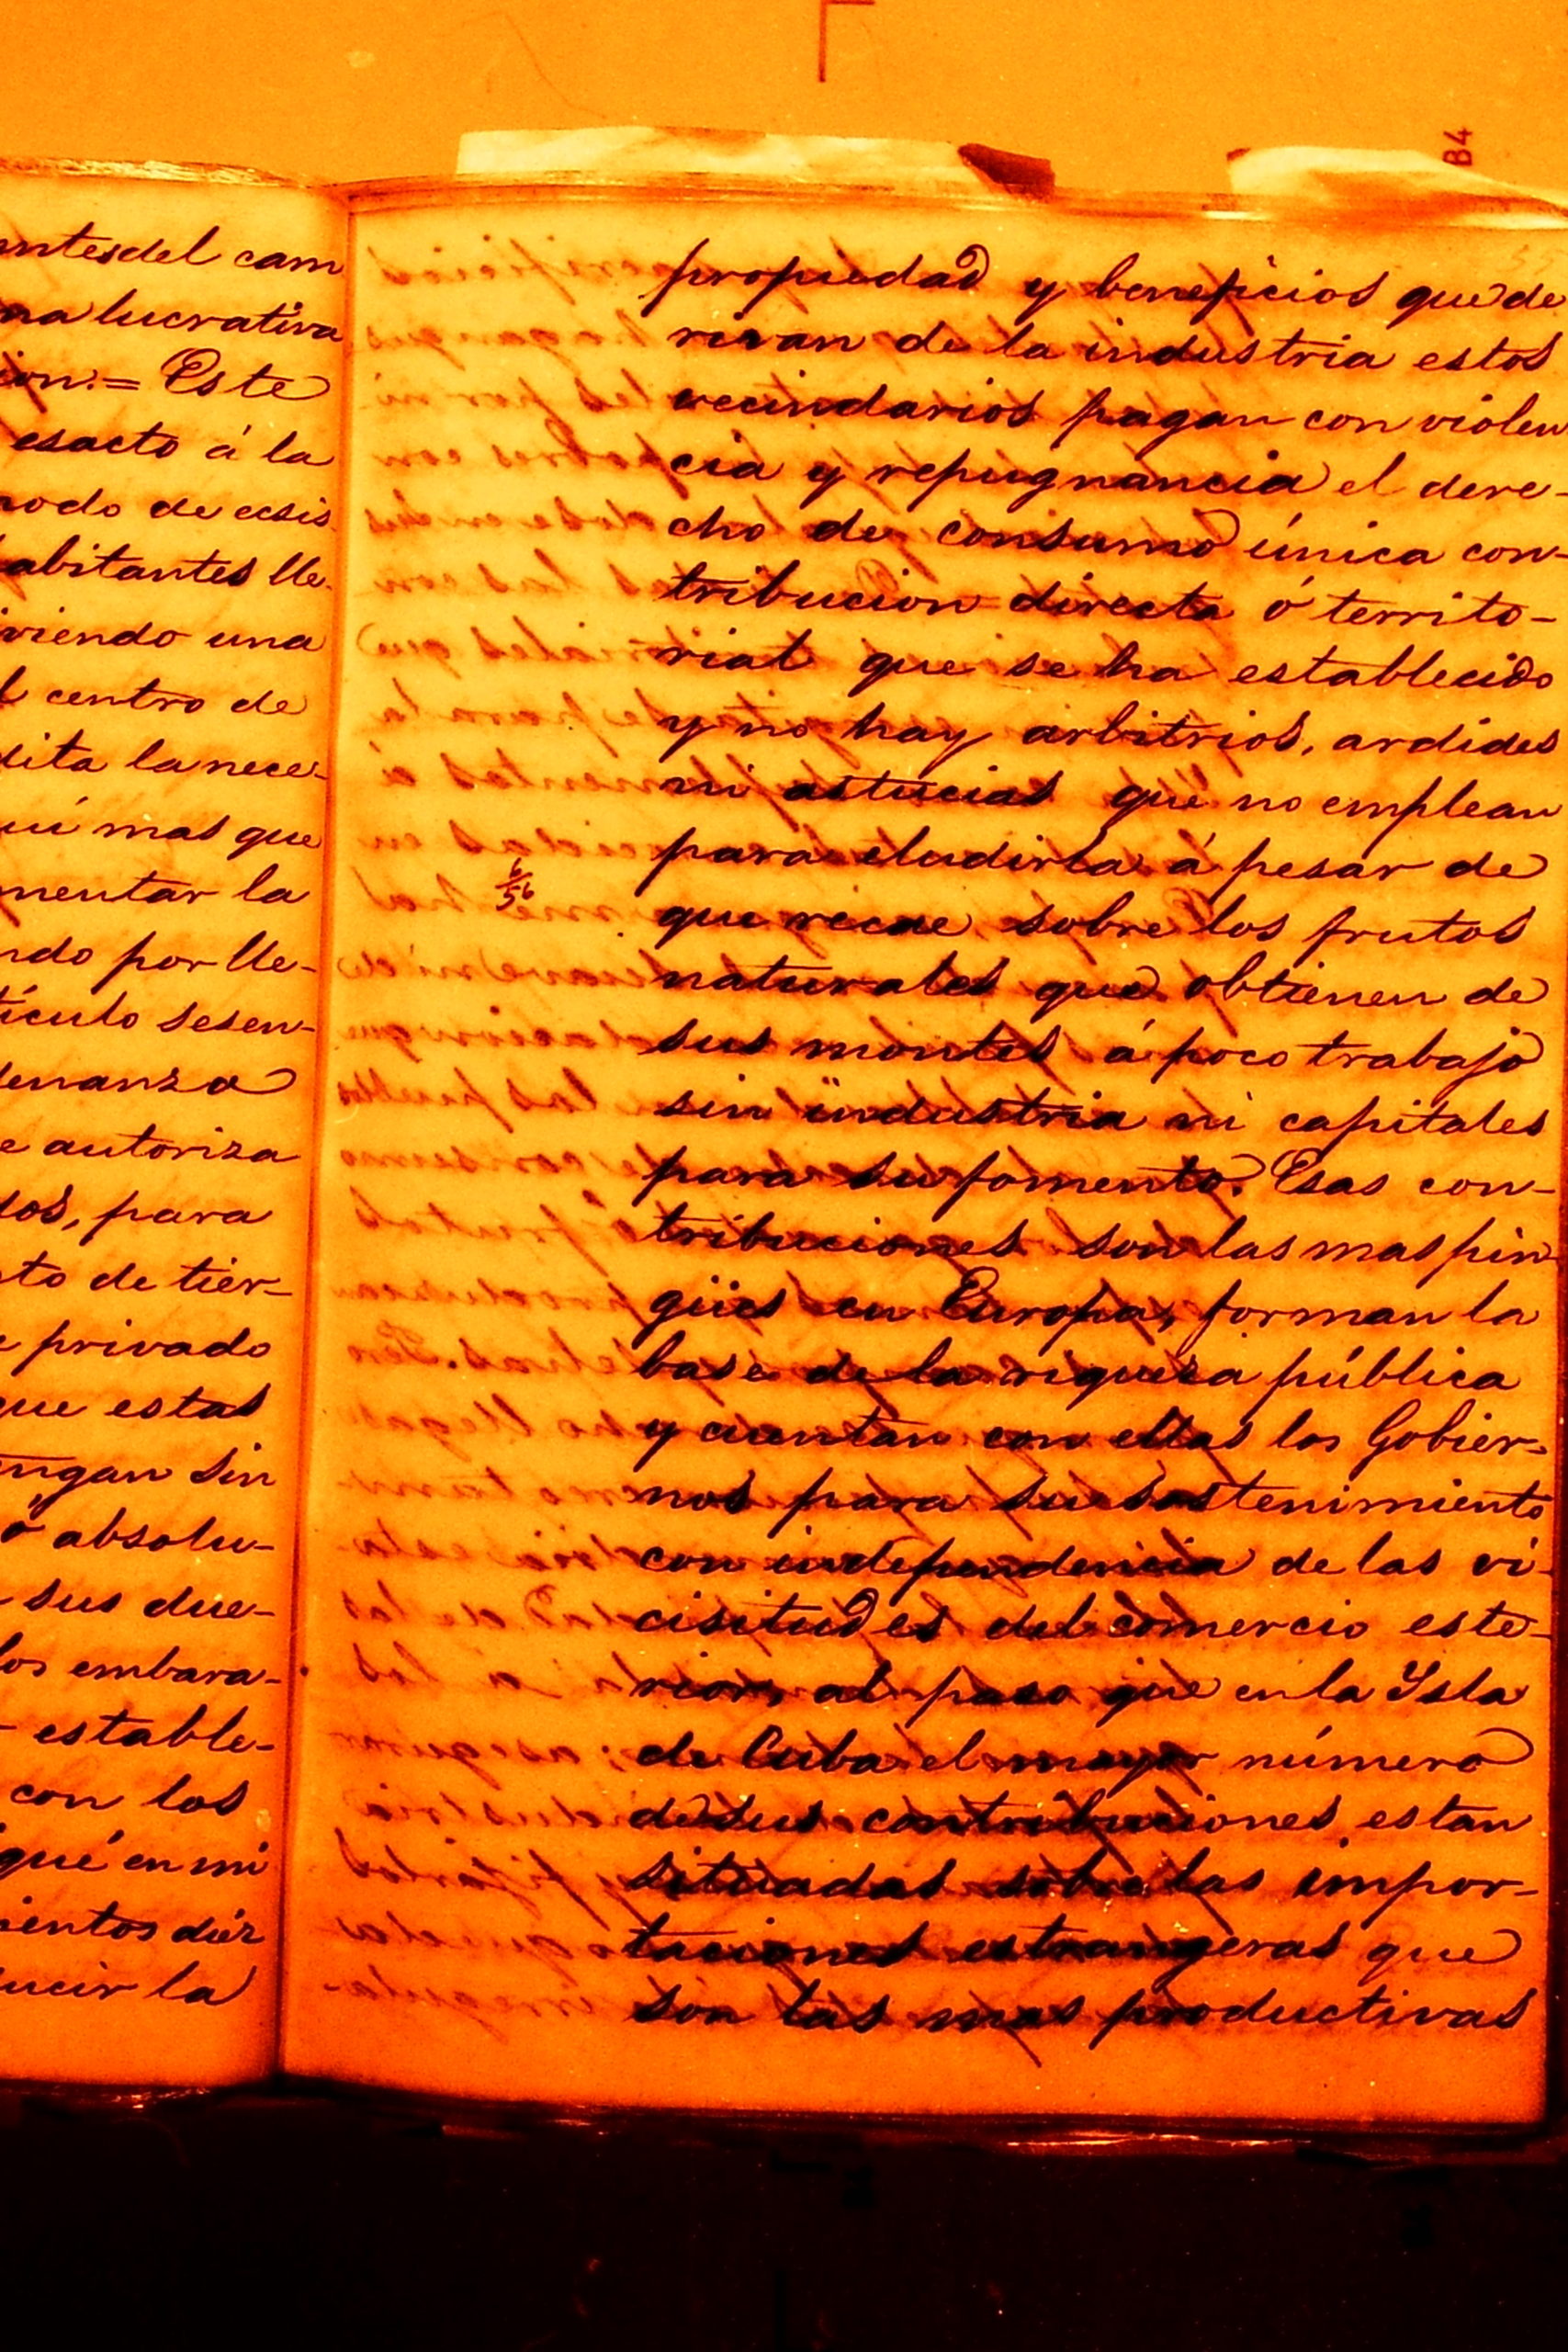 ntesdel cam
na lucrativa
ion.= Este
esacto á la
modo de ecsis
abitantes lle-
viendo una
l centro de
dita la nece-
uí mas que
mentar la
ndo por lle-
tículo sesen-
denanza
e autoriza
dos, para
to de tier-
e privado
que estas
engan sin
ó absolu-
sus due-
los embara-
estable-
con los
qué en mi
ientos diez
lucir la
B4
propiedad y beneficios que de
rivan de la industria estos
vecindarios pagan con violen
cia y repugnancia el dere-
cho de consumo única con-
tribucion directa ó territo-
rial que se ha establecido
y no hay arbitrios, ardides
ni astucias que no emplean
para eludirla á pesar de
6/56
que recae sobre los frutos
naturales que obtienen de
sus montes á poco trabajo
sin industria ni capitales
para su fomento. Esas con-
tribuciones son las mas pin-
gües en Europa, forman la
base de la riqueza pública
y cuentan con ellas los Gobier-
nos para su sostenimiento
con independencia de las vi-
cisitudes del comercio este-
rior, al paso que en la Ysla
de Cuba el mayor número
de sus contribuciones estan
situadas sobre las impor-
taciones estrangeras que
son las mas productivas